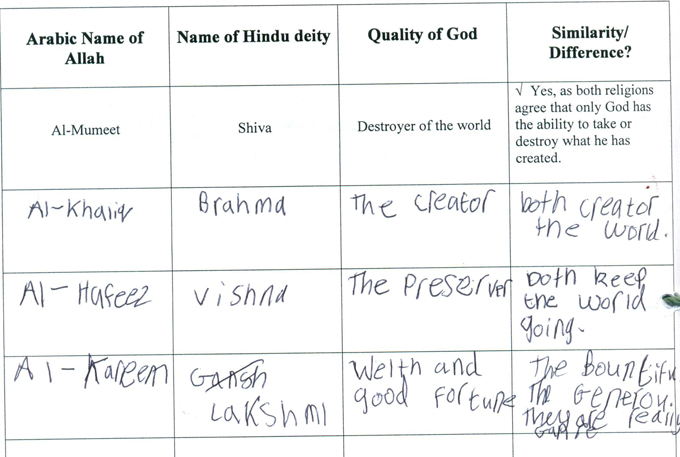 Arabic Name of
Allah
Name of Hindu deity
Quality of God
Similarity/
Difference?
Al-Mumeet
Shiva
Destroyer of the world
√ Yes, as both religions
agree that only God has
the ability to take or
destroy what he has
created.
Al-Khaliq
Brahma
The creator
both creator
the world.
Al-Hafeez
Vishna
The Preserver
both keep
the world
going.
Al-Kareem
Lakshmi
Welth and
good fortune
The Bountifu
The
They are really